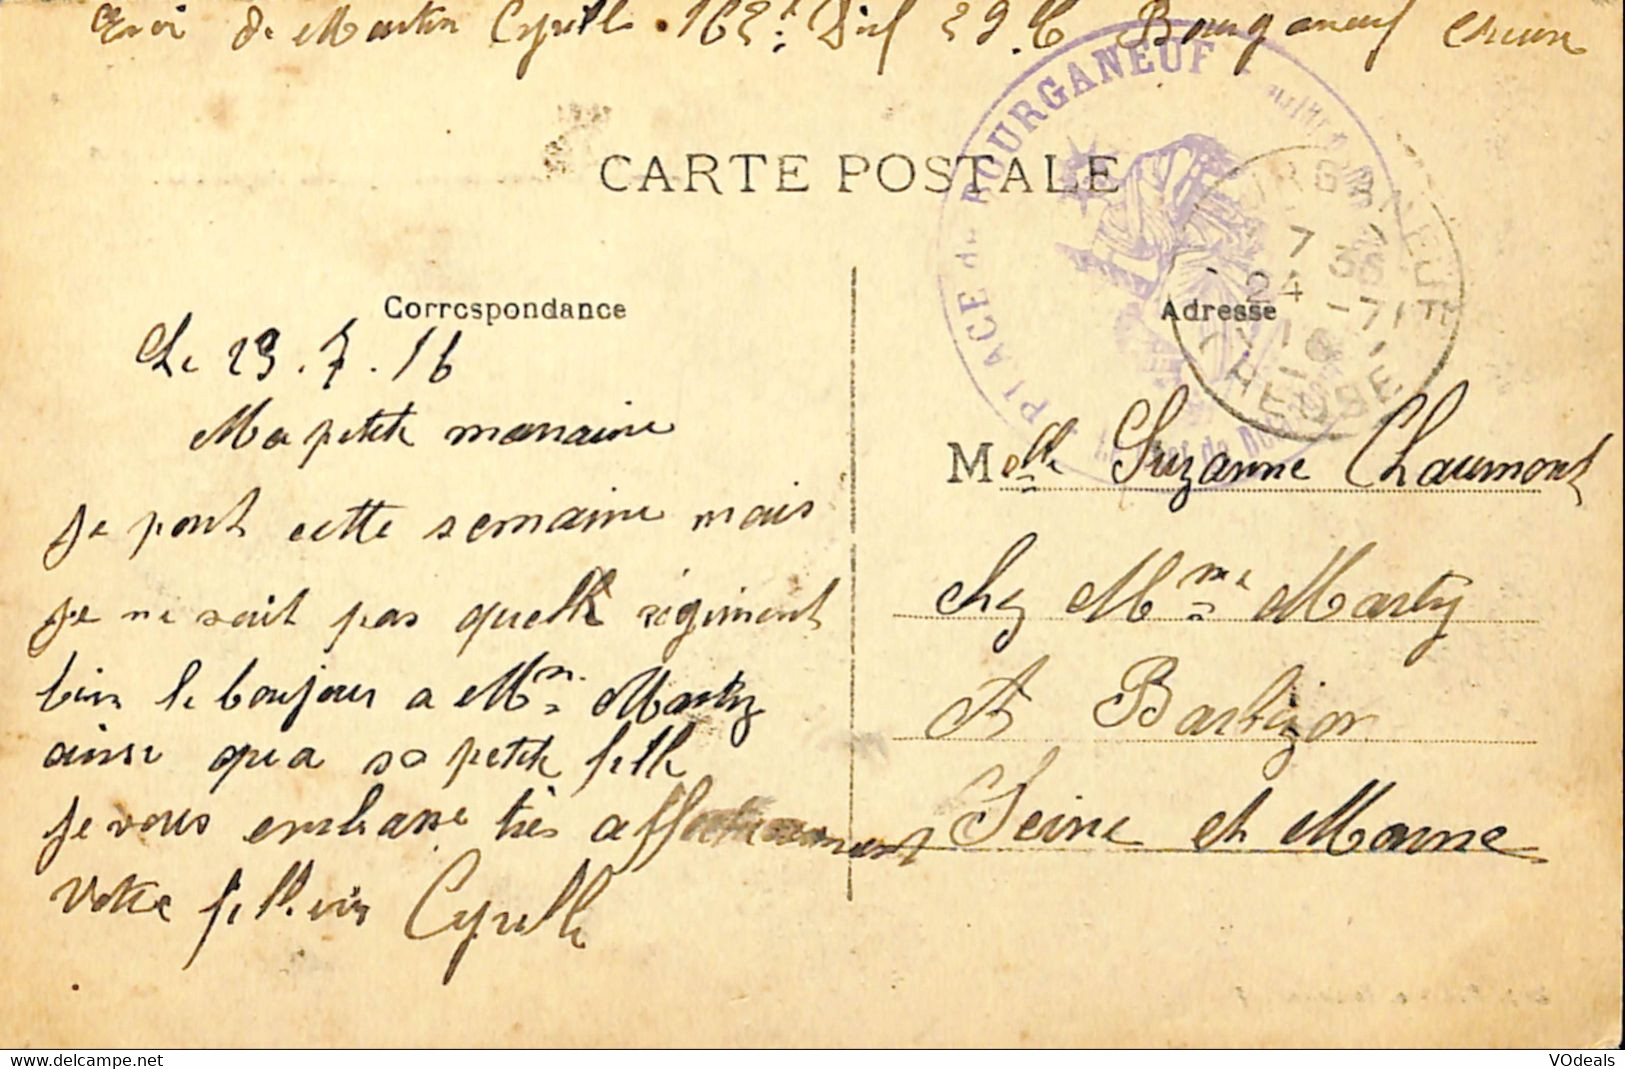 Envoi de Martin Cyrille . 162: Dief 29.C Bourganeuf Creuse
PLACE de BOURGANEUF
CARTE POSTALE
BOURGANEUF
7 35
24 -7
16
CREUSE
Correspondance
Adresse
Le 23.7.16
Ma petite marraine
je part cette semaine mais
je ne sait pas quelle régiment
bien le boujour a Mme Marty
ainsi que a sa petite fille
je vous embrasse très affectueusement
Votre filleuin Cyrille
Melle Suzanne Chaumont
Chez Mme Marty
A Barbizon
Seine et Marne
VOdeals